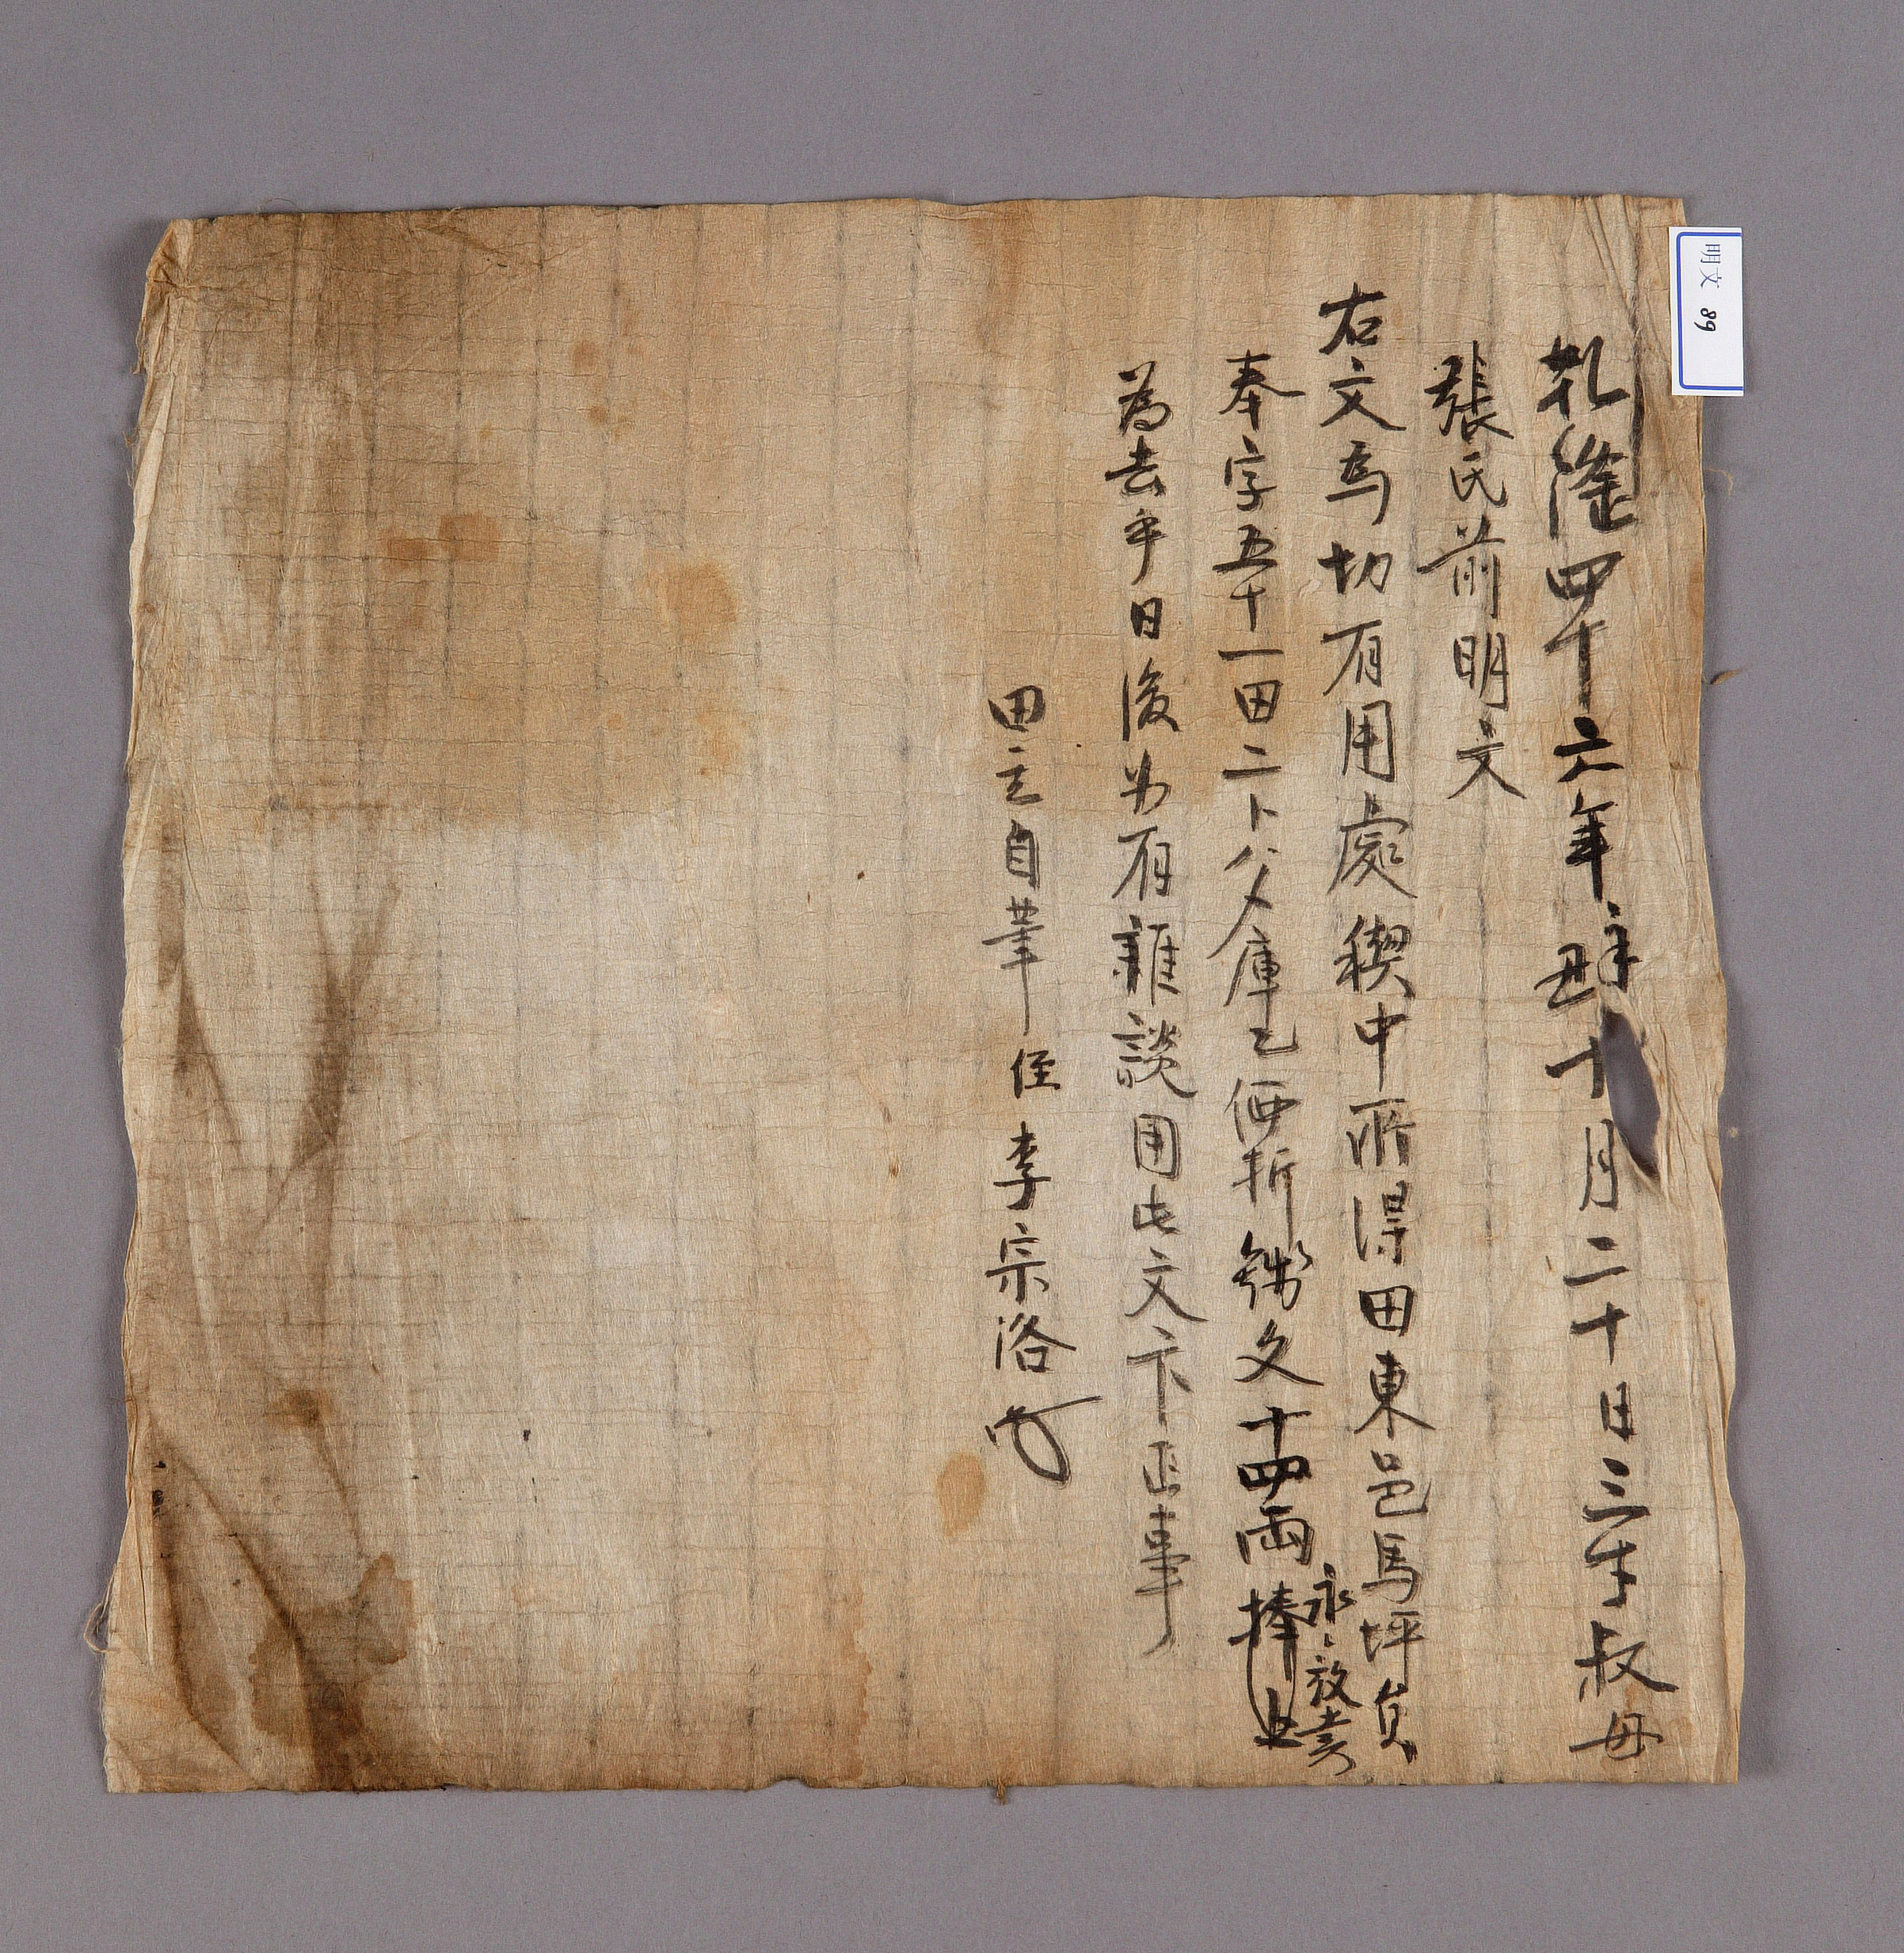 乹隆四十六年辛丑十月二十日三寸叔母
張氏前明文
右文爲切有用處稧中所得田東邑馬坪員
奉字五十一田二卜八夕庫乙價折錢文十四兩捧上
永〻放賣
爲去乎日後为有雜談用此文卞正事
田主自筆 侄 李宗洛
明文 89